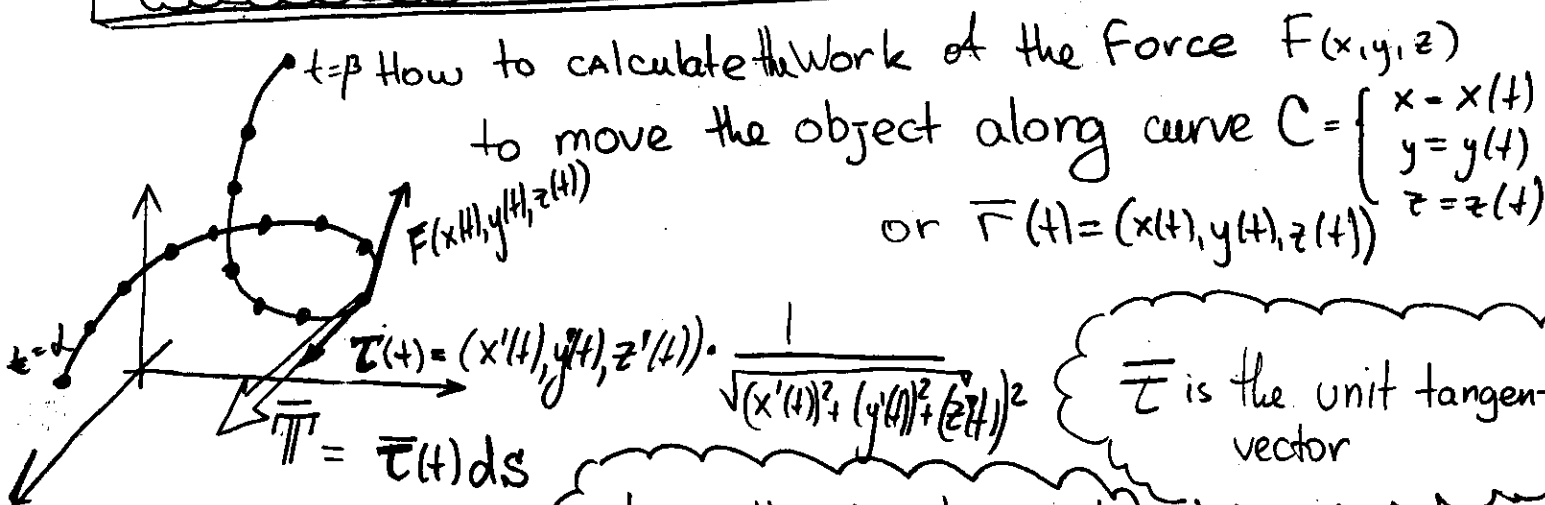 t=β How to calculate the Work of the Force F(x,y,z)
to move the object along curve C = { x = x(t)
y = y(t)
z = z(t)
or r̅(t) = (x(t), y(t), z(t))
F(x(t), y(t), z(t))
t=α
τ(t) = (x'(t), y'(t), z'(t)) · 1/√((x'(t))²+(y'(t))²+(z'(t))²
τ̅ is the unit tangen-
vector
T̅ = τ̅(t) ds